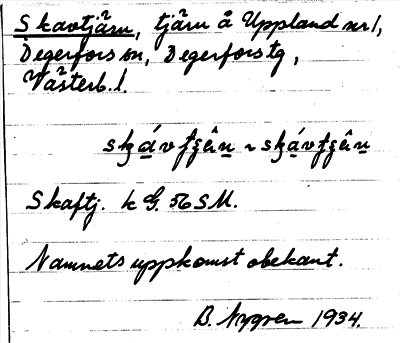 Skavtjärn, tjärn å Uppland nr 1,
Degerfors sn, Degerfors tg,
Västerb. l.
Skaftj. k G. 56 SM.
Namnets uppkomst obekant.
B. Nygren 1934.